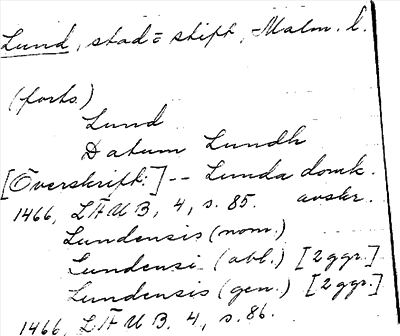 Lund, stad o stift, Malm. l.
(forts.)
Lund
Datum Lundh
[Överskrift:] -- Lunda domk.
1466, LÄUB, 4, s. 85. avskr.
Lundensis (nom.)
Lundensi (abl.) [2 ggr.]
Lundensis (gen.) [2 ggr.]
1466, LÄUB. 4, s. 86.